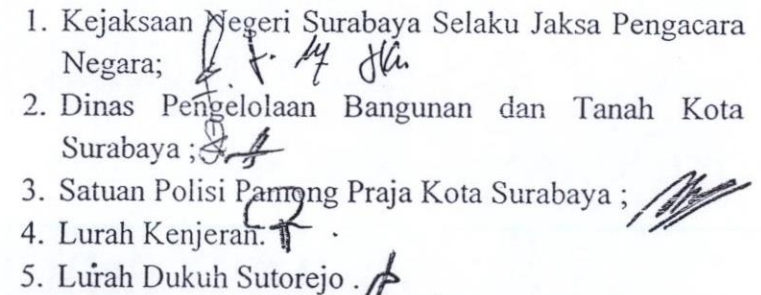 1. Kejaksaan Negeri Surabaya Selaku Jaksa Pengacara
Negara;
2. Dinas Pengelolaan Bangunan dan Tanah Kota
Surabaya ;
3. Satuan Polisi Pamong Praja Kota Surabaya ;
4. Lurah Kenjeran.
5. Lurah Dukuh Sutorejo .